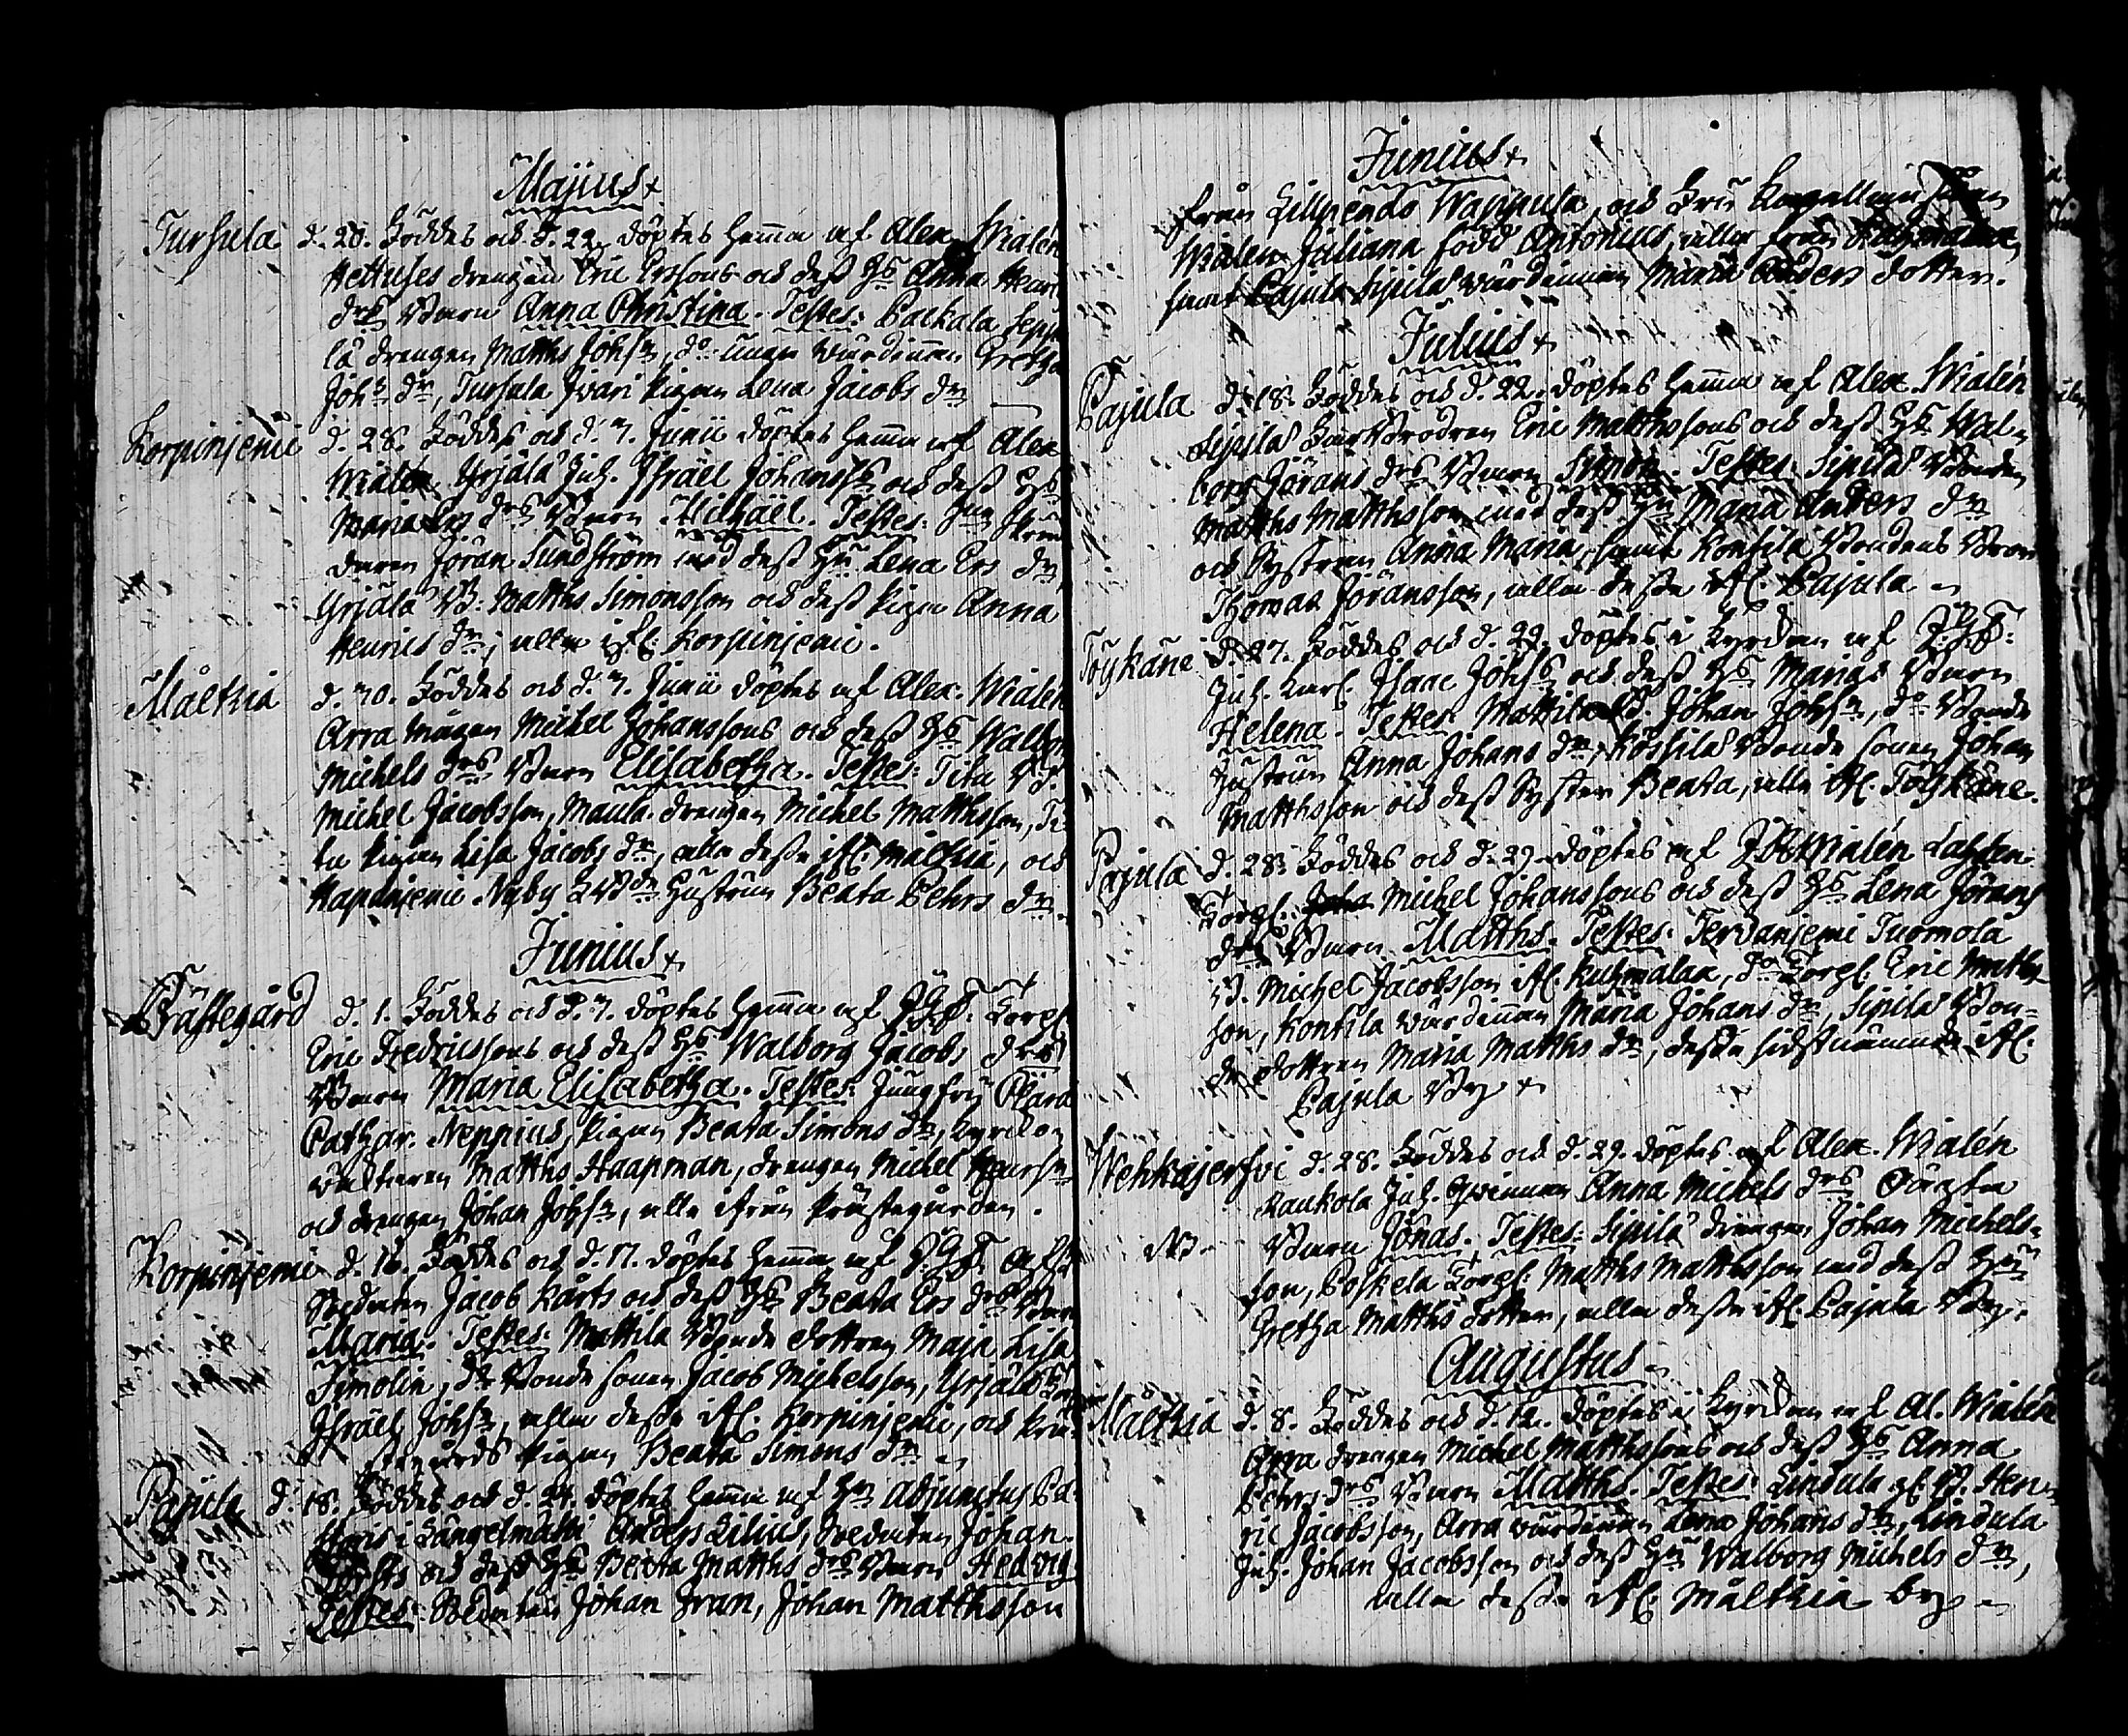 Majus
Tursula d. 20. Föddes och d. 22. döptes hemma af Alex. Wialen
Hettuses drengen Eric Erssons och dess Hs Anna Henr
drs Barn Anna Christina. Testes: Packala Seppä
lä drengen Matths Johsn, do unga värdinnan Gretha
Johs dr, Tursula Jvari pigan Lena Jacobs dr
Korpinjemi d. 28. Föddes och d. 7. Junii döptes hemma af Alex
Wialen Yrjälä Inh. Israel Johanss och dess Hs
Maria Ers drs Barn Michäel. Testes:
Jöran Sundström med dess Hu Lena Ers dr
Yrjälä B. Matths Simonsson och dess pigan Anna
Henrics dr, alla i fl. Korpinjemi.
Mälthia d. 30. Föddes och d. 7. Junii döptes af Alex. Wialen
Arra mågen Michel Johanssons och dess Hs Walborg
Michels drs Barn Elisabetha. Testes: Tita B.
Michel Jacobsson, Maula drengen Michel Matthsson, Ti-
ta pigan Lisa Jacobs dr, alla desse ifl. Mälthia, och
Hapanjemi Nyby Hustrun Beata Pehrs dr
Junius
Prästegård d. 1. Föddes och d. 7. döptes hemma af J.G.F. Torpf.
Eric Fredricssons och dess Hs Walborg Jacobs drs
Barn Maria Elisabetha. Testes: Jungfru Clara
Cathar. Neppius, pigan Beata Simons dr, kyrkio-
väktaren Matths Haapman, drengen Michel Henrsn
och drengen Johan Johsn, alla ifrån prästegården.
Korpinjemi d. 16. Föddes och d. 17. döptes hemma af J.G.F.
Soldaten Jacob Kärts och dess Hs Beata Ers drs Barn
Maria. Testes: Mattila Bonde dottren Maja Lisa
Simolin, do Bonde sonen Jacob Michelsson, Yrjälä
Israel Johsn, alla desse ifl. Korpinjemi, och prä-
stegårds pigan Beata Simons dr
Pajula d. 18. Föddes och d. 24. döptes hemma af Hr Adjunctus Pa-
storis i Längelmäki Anders Lilius, Soldaten Johan
och dess Hs Beata Matths drs Barn Hedvig
Testes: Soldaten Johan Jvan, Johan Matthsson
Junius
från Lillpendo Wappula, och Fru Kapellans Frun
Wialen Juliana född Antonius, alla från Kuhmalax
samt Pajula Sipilä värdinnan Maria Anders dotter.
Julius
Pajula d. 18. Föddes och d. 22. döptes hemma af Alex. Wialén
Sipilä Farbrodren Eric Matthssons och dess Hs Wal-
borg Jörans drs Barn Simon. Testes: Sipilä Bonden
Matths Matthsson med dess Hu Maria Anders dr
och Systren Anna Maria, samt Konfila Bondens Bror
Thomas Jöransson, alla desse ifl. Pajula
Töykäne d. 27. Föddes och d. 29. döptes i Kyrkan af J.G.F.
Inh. karl. Isaac Johss och dess Hs Marias Barn
Helena. Testes: Mattila B. Johan Johsn, do Bonde
Hustrun Anna Johans dr, Kössilä Bonde sonen Johan
Matthsson och dess Syster Beata, alla ifl. Töykäne.
Pajula d. 28. Föddes och d. 29. döptes af Wialén Lahten
Torpf. Michel Johanssons och dess Hs Lena Jörans
drs Barn Matths. Testes: Tervanjemi Tuomola
B. Michel Jacobsson ifl. Kuhmalax, do Torpf. Eric Matths-
son, Konfila värdinnan Maria Johans dr, Sipilä Bon-
de dottren Maria Matths dr, desse sidstnämnde ifl.
Pajula By
Wehkajerfvi d. 28. Föddes och d. 29. döptes af Alex. Wialén
Raukola Inh. qvinnan Anna Michels drs Oäkta
NB Barn Jonas. Testes: Sipilä drengen Johan Michels-
son, Poskela Torpf. Matths Matthsson med dess Hu
Gretha Matths dotter, alla desse ifl. Pajula By.
Augustus
Mälthia d. 8. Föddes och d. 12. döptes i Kyrkan af Al. Wialén
Arra drengen Michel Matthssons och dess Hs Anna
Pehrs drs Barn Matths. Testes: Lindula gl. B. Hen-
ric Jacobsson, Arra värdinnan Anna Johans dr, Lindula
Inh. Johan Jacobsson och dess Hu Walborg Michels dr,
alla desse ifl. Mälthia by